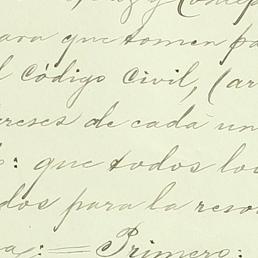 para que tomen pa
l Código Civil, (ar
reses de cada un
: que todos los
dos para la reso
a: = Primero: